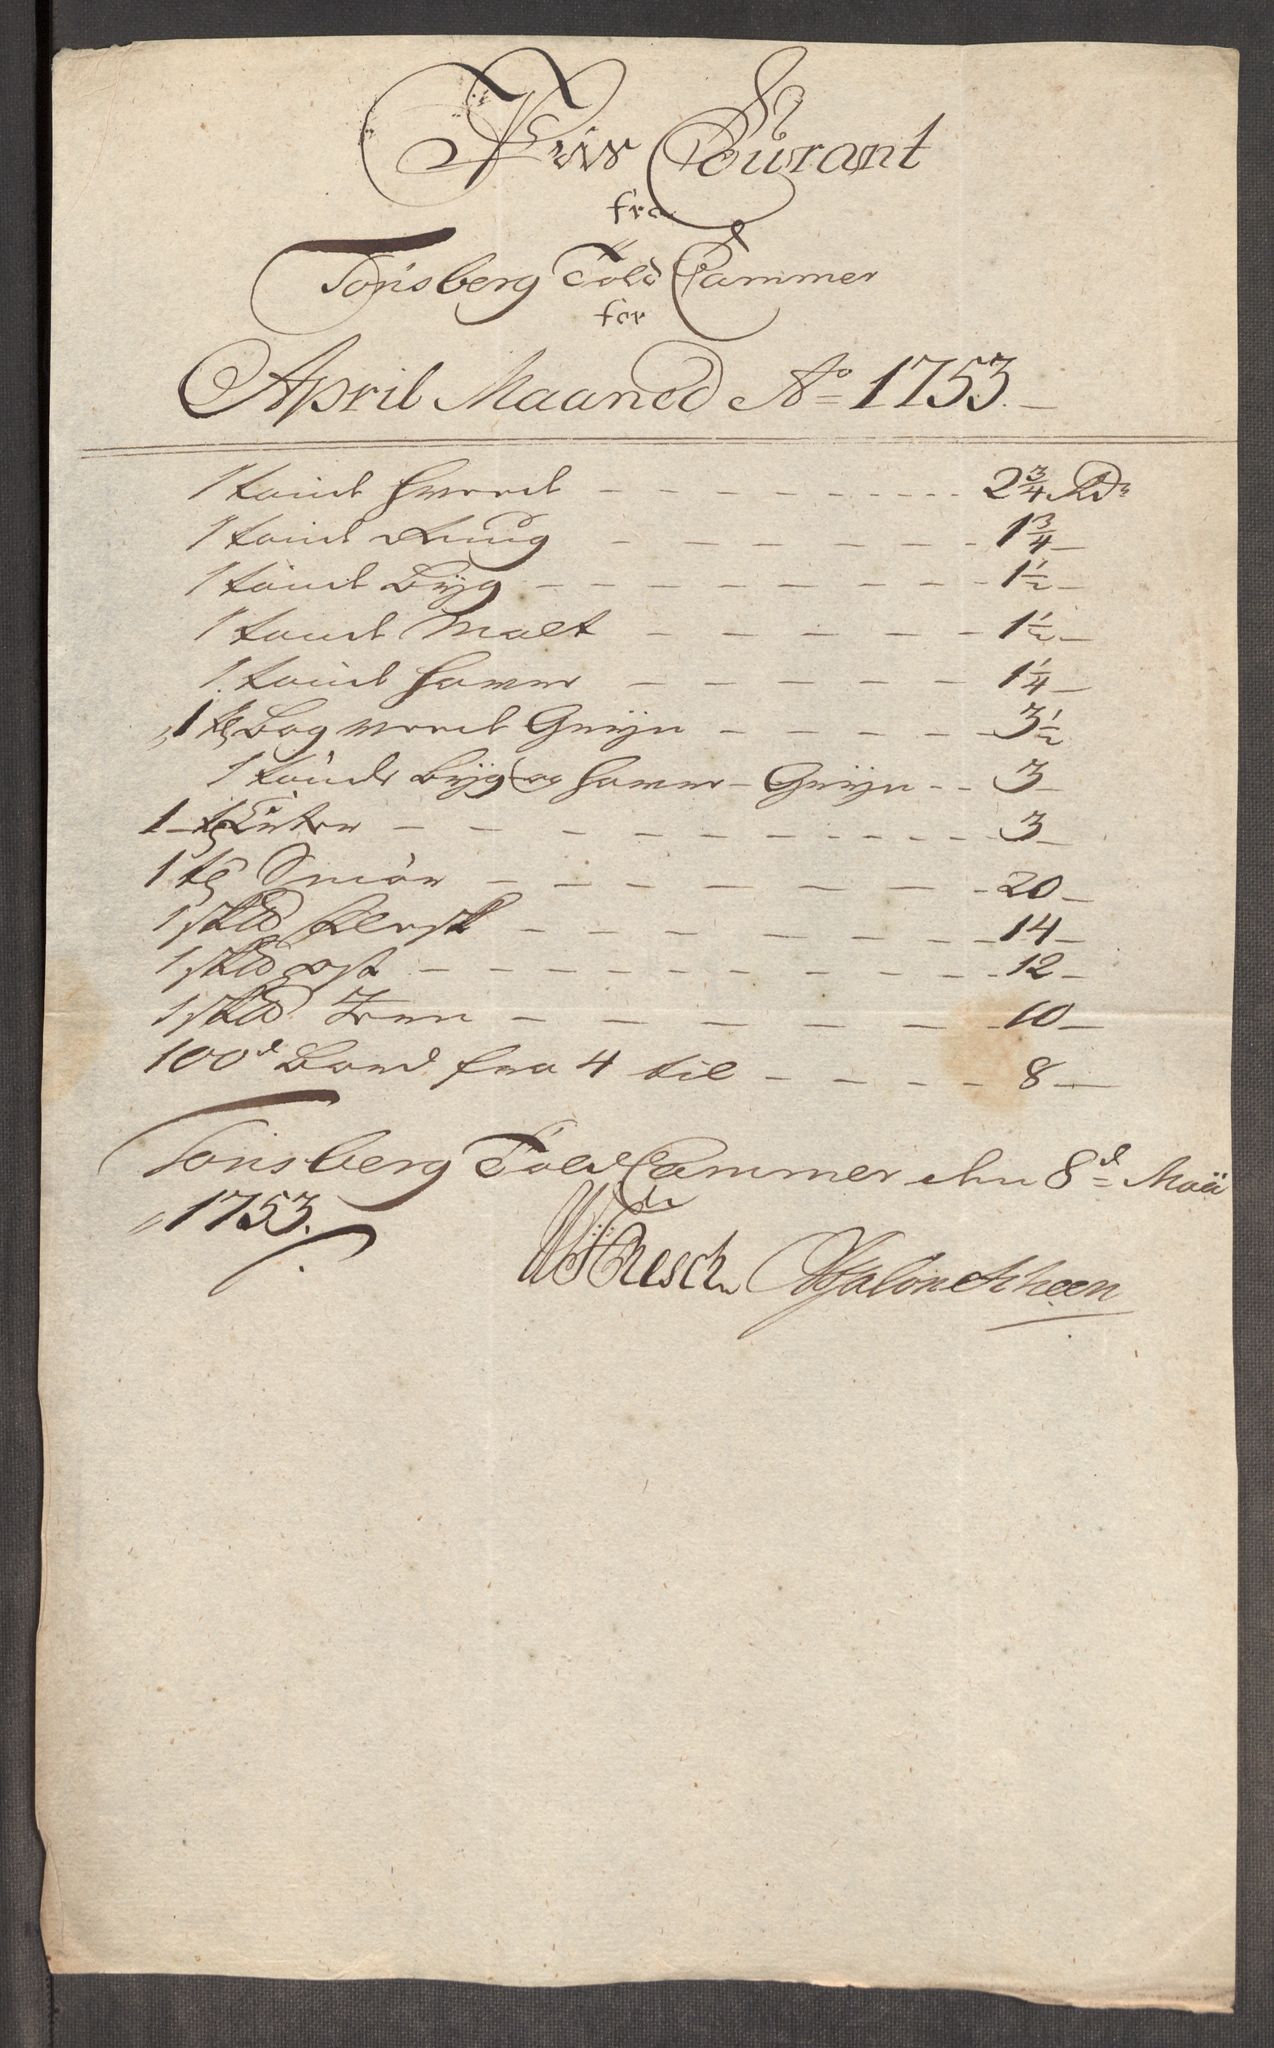 Priis Courant
fra
Tonsberg Told Cammer
for
April Maaned Ao 1753.
1 tønde hvede - - - 2 3/4 Rdr
1 tønde Rug - - - 1 3/4 -
1 tønde Byg - - - 1 1/2 -
1 tønde Malt - - - 1 1/2 -
1 tønde haver - - - 1 1/4 -
1 td Boghvede Gryn - - - 3 1/2
1 tønde Byg og haver-Gryn - - 3 -
1 td Erter - - - 3 -
1 td Smør - - - 20 -
1 sk℔ flesk - - - 14 -
1 sk℔ ost - - - 12 -
1 sk℔ - - - 10 -
100d Bord fra 4 til - - - 8 -
Tonsberg Told Cammer den 8d Maii
1753.
Resch